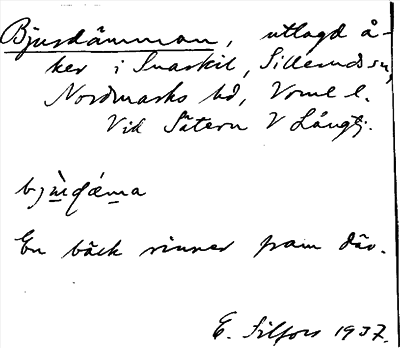 Bjurdämman, utlagd å-
ker i Snarkil, Sillerud sn,
Nordmarks hd, Vrml l.
Vid Sätern V Långtj.
En bäck rinner fram där.
E. Silfors 1937.